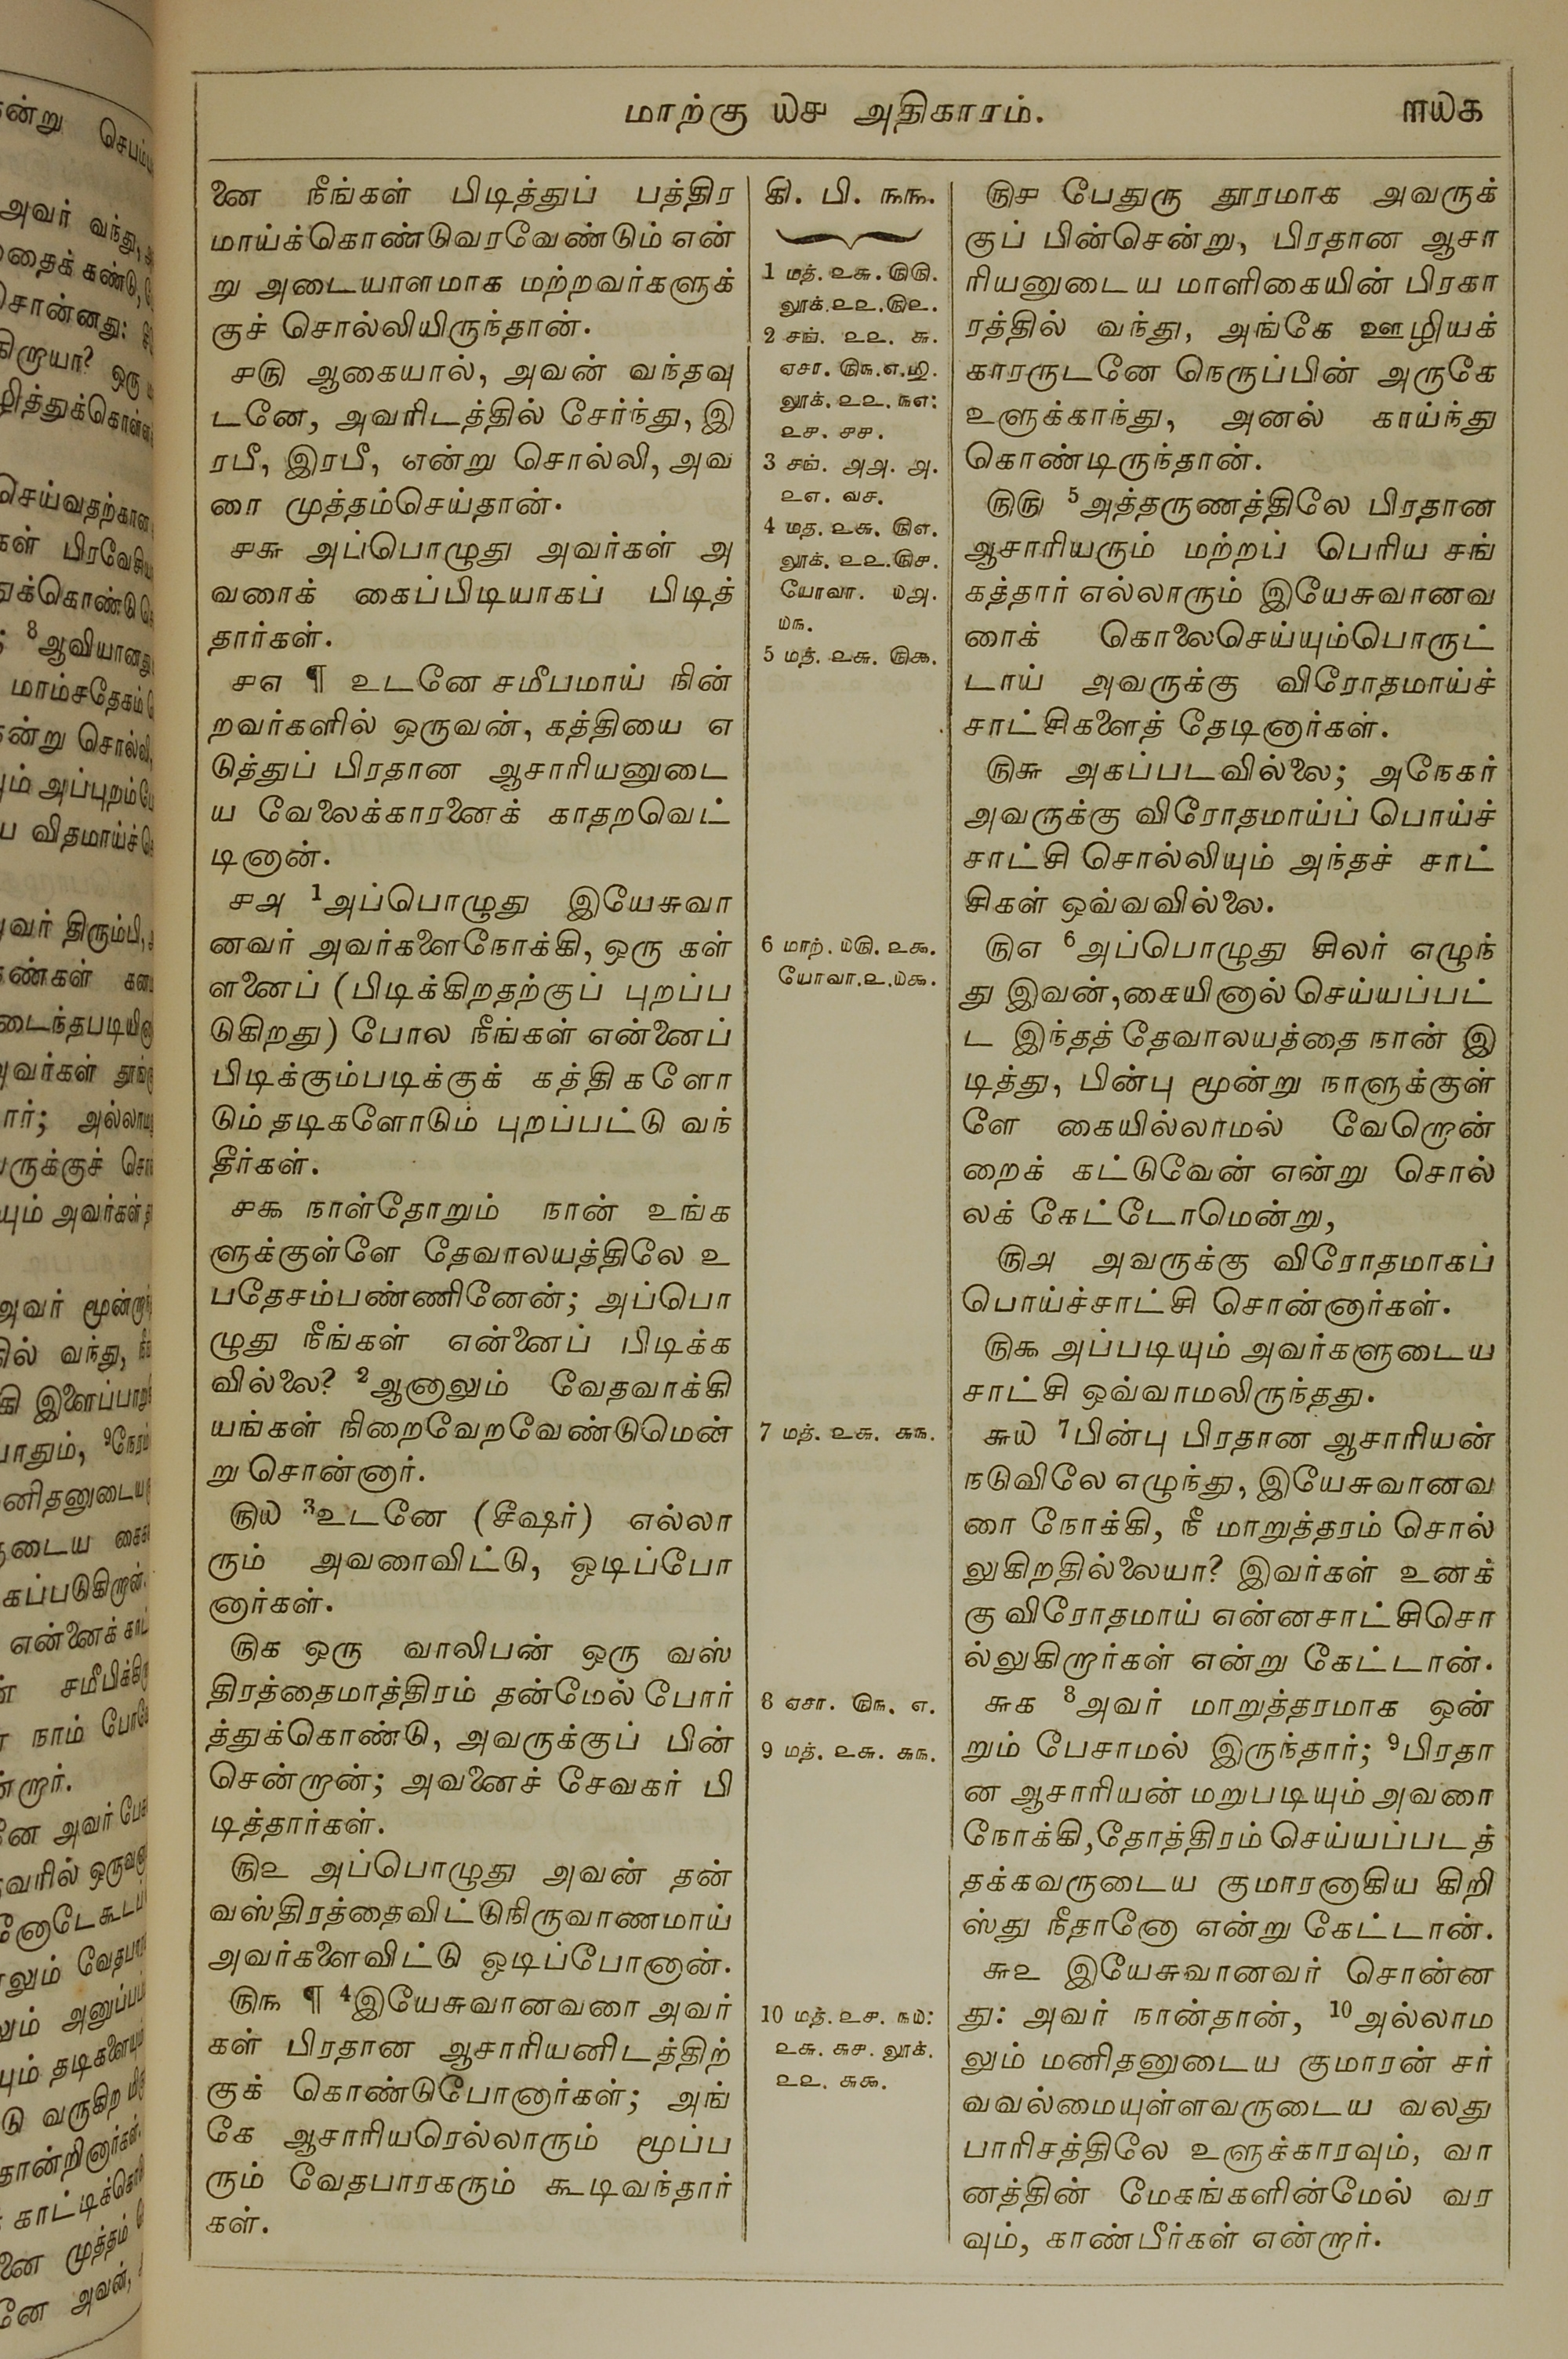 மாற்கு ௰௪ அதிகாரம்.
௩௱௰௧
னை நீங்கள் பிடித்துப் பத்திர
மாய்க்கொண்டுவரவேண்டும் என்
று அடையாளமாக மற்றவர்களுக்
குச் சொல்லியிருந்தான்.
௪௫ ஆகையால், அவன் வந்தவு
டனே, அவரிடத்தில் சேர்ந்து, இ
ரபீ, இரபீ, என்று சொல்லி, அவ
ரை முத்தம்செய்தான்.
௪௬ அப்பொழுது அவர்கள் அ
வரைக் கைப்பிடியாகப் பிடித்
தார்கள்.
௪௭ ¶ உடனே சமீபமாய் நின்
றவர்களில் ஒருவன், கத்தியை எ
டுத்துப் பிரதான ஆசாரியனுடை
ய வேலைக்காரனைக் காதறவெட்
டினான்.
௪௮ 1அப்பொழுது இயேசுவா
னவர் அவர்களைநோக்கி, ஒரு கள்
ளனைப் (பிடிக்கிறதற்குப் புறப்ப
டுகிறது) போல நீங்கள் என்னைப்
பிடிக்கும்படிக்குக் கத்திகளோ
டும் தடிகளோடும் புறப்பட்டு வந்
தீர்கள்.
௪௯ நாள்தோறும் நான் உங்க
ளுக்குள்ளே தேவாலயத்திலே உ
பதேசம்பண்ணினேன்; அப்பொ
ழுது நீங்கள் என்னைப் பிடிக்க
வில்லை? 2ஆனாலும் வேதவாக்கி
யங்கள் நிறைவேறவேண்டுமென்
று சொன்னார்.
௫௰ 3உடனே (சீஷர்) எல்லா
ரும் அவரைவிட்டு, ஓடிப்போ
னார்கள்.
௫௧ ஒரு வாலிபன் ஒரு வஸ்
திரத்தைமாத்திரம் தன்மேல் போர்
த்துக்கொண்டு, அவருக்குப் பின்
சென்றான்; அவனைச் சேவகர் பி
டித்தார்கள்.
௫௨ அப்பொழுது அவன் தன்
வஸ்திரத்தைவிட்டுநிருவாணமாய்
அவர்களைவிட்டு ஓடிப்போனான்.
௫௩ ¶ 4இயேசுவானவரை அவர்
கள் பிரதான ஆசாரியனிடத்திற்
குக் கொண்டுபோனார்கள்; அங்
கே ஆசாரியரெல்லாரும் மூப்ப
ரும் வேதபாரகரும் கூடிவந்தார்
கள்.
கி. பி. ௩௩.
1 மத். ௨௬. ௫௫.
லூக். ௨௨. ௫௨.
2 சங். ௨௨. ௬.
ஏசா. ௫௩. ௭.
லூக். ௨௨. ௩௭:
௨௪. ௪௪.
3 சங். ௮௮. ௮.
4 மத. ௨௬. ௫௭.
லூக். ௨௨. ௫௪.
யோவா. ௰௮.
௰௩.
5 மத். ௨௬. ௫௯.
6 மாற். ௰௫. ௨௯.
யோவா. ௨. ௰௯.
7 மத். ௨௬. ௬௩.
8 ஏசா. ௫௩. ௭.
9 மத். ௨௬. ௬௩.
10 மத். ௨௪. ௩௰:
௨௬. ௬௪. லூக்.
௨௨. ௬௯.
௫௪ பேதுரு தூரமாக அவருக்
குப் பின்சென்று, பிரதான ஆசா
ரியனுடைய மாளிகையின் பிரகா
ரத்தில் வந்து, அங்கே ஊழியக்
காரருடனே நெருப்பின் அருகே
உளுக்காந்து, அனல் காய்ந்து
கொண்டிருந்தான்.
௫௫ 5அத்தருணத்திலே பிரதான
ஆசாரியரும் மற்றப் பெரிய சங்
கத்தார் எல்லாரும் இயேசுவானவ
ரைக் கொலைசெய்யும்பொருட்
டாய் அவருக்கு விரோதமாய்ச்
சாட்சிகளைத் தேடினார்கள்.
௫௬ அகப்படவில்லை; அநேகர்
அவருக்கு விரோதமாய்ப் பொய்ச்
சாட்சி சொல்லியும் அந்தச் சாட்
சிகள் ஒவ்வவில்லை.
௫௭ 6அப்பொழுது சிலர் எழுந்
து இவன், கையினால் செய்யப்பட்
ட இந்தத் தேவாலயத்தை நான் இ
டித்து, பின்பு மூன்று நாளுக்குள்
ளே கையில்லாமல் வேறொன்
றைக் கட்டுவேன் என்று சொல்
லக் கேட்டோமென்று,
௫௮ அவருக்கு விரோதமாகப்
பொய்ச்சாட்சி சொன்னார்கள்.
௫௯ அப்படியும் அவர்களுடைய
சாட்சி ஒவ்வாமலிருந்தது.
௬௰ 7பின்பு பிரதான ஆசாரியன்
நடுவிலே எழுந்து, இயேசுவானவ
ரை நோக்கி, நீ மாறுத்தரம் சொல்
லுகிறதில்லையா? இவர்கள் உனக்
கு விரோதமாய் என்னசாட்சிசொ
ல்லுகிறார்கள் என்று கேட்டான்.
௬௧ 8அவர் மாறுத்தரமாக ஒன்
றும் பேசாமல் இருந்தார்; 9பிரதா
ன ஆசாரியன் மறுபடியும் அவரை
நோக்கி, தோத்திரம் செய்யப்படத்
தக்கவருடைய குமாரனாகிய கிறி
ஸ்து நீதானோ என்று கேட்டான்.
௬௨ இயேசுவானவர் சொன்ன
து: அவர் நான்தான், 10அல்லாம
லும் மனிதனுடைய குமாரன் சர்
வவல்மையுள்ளவருடைய வலது
பாரிசத்திலே உளுக்காரவும், வா
னத்தின் மேகங்களின்மேல் வர
வும், காண்பீர்கள் என்றார்.